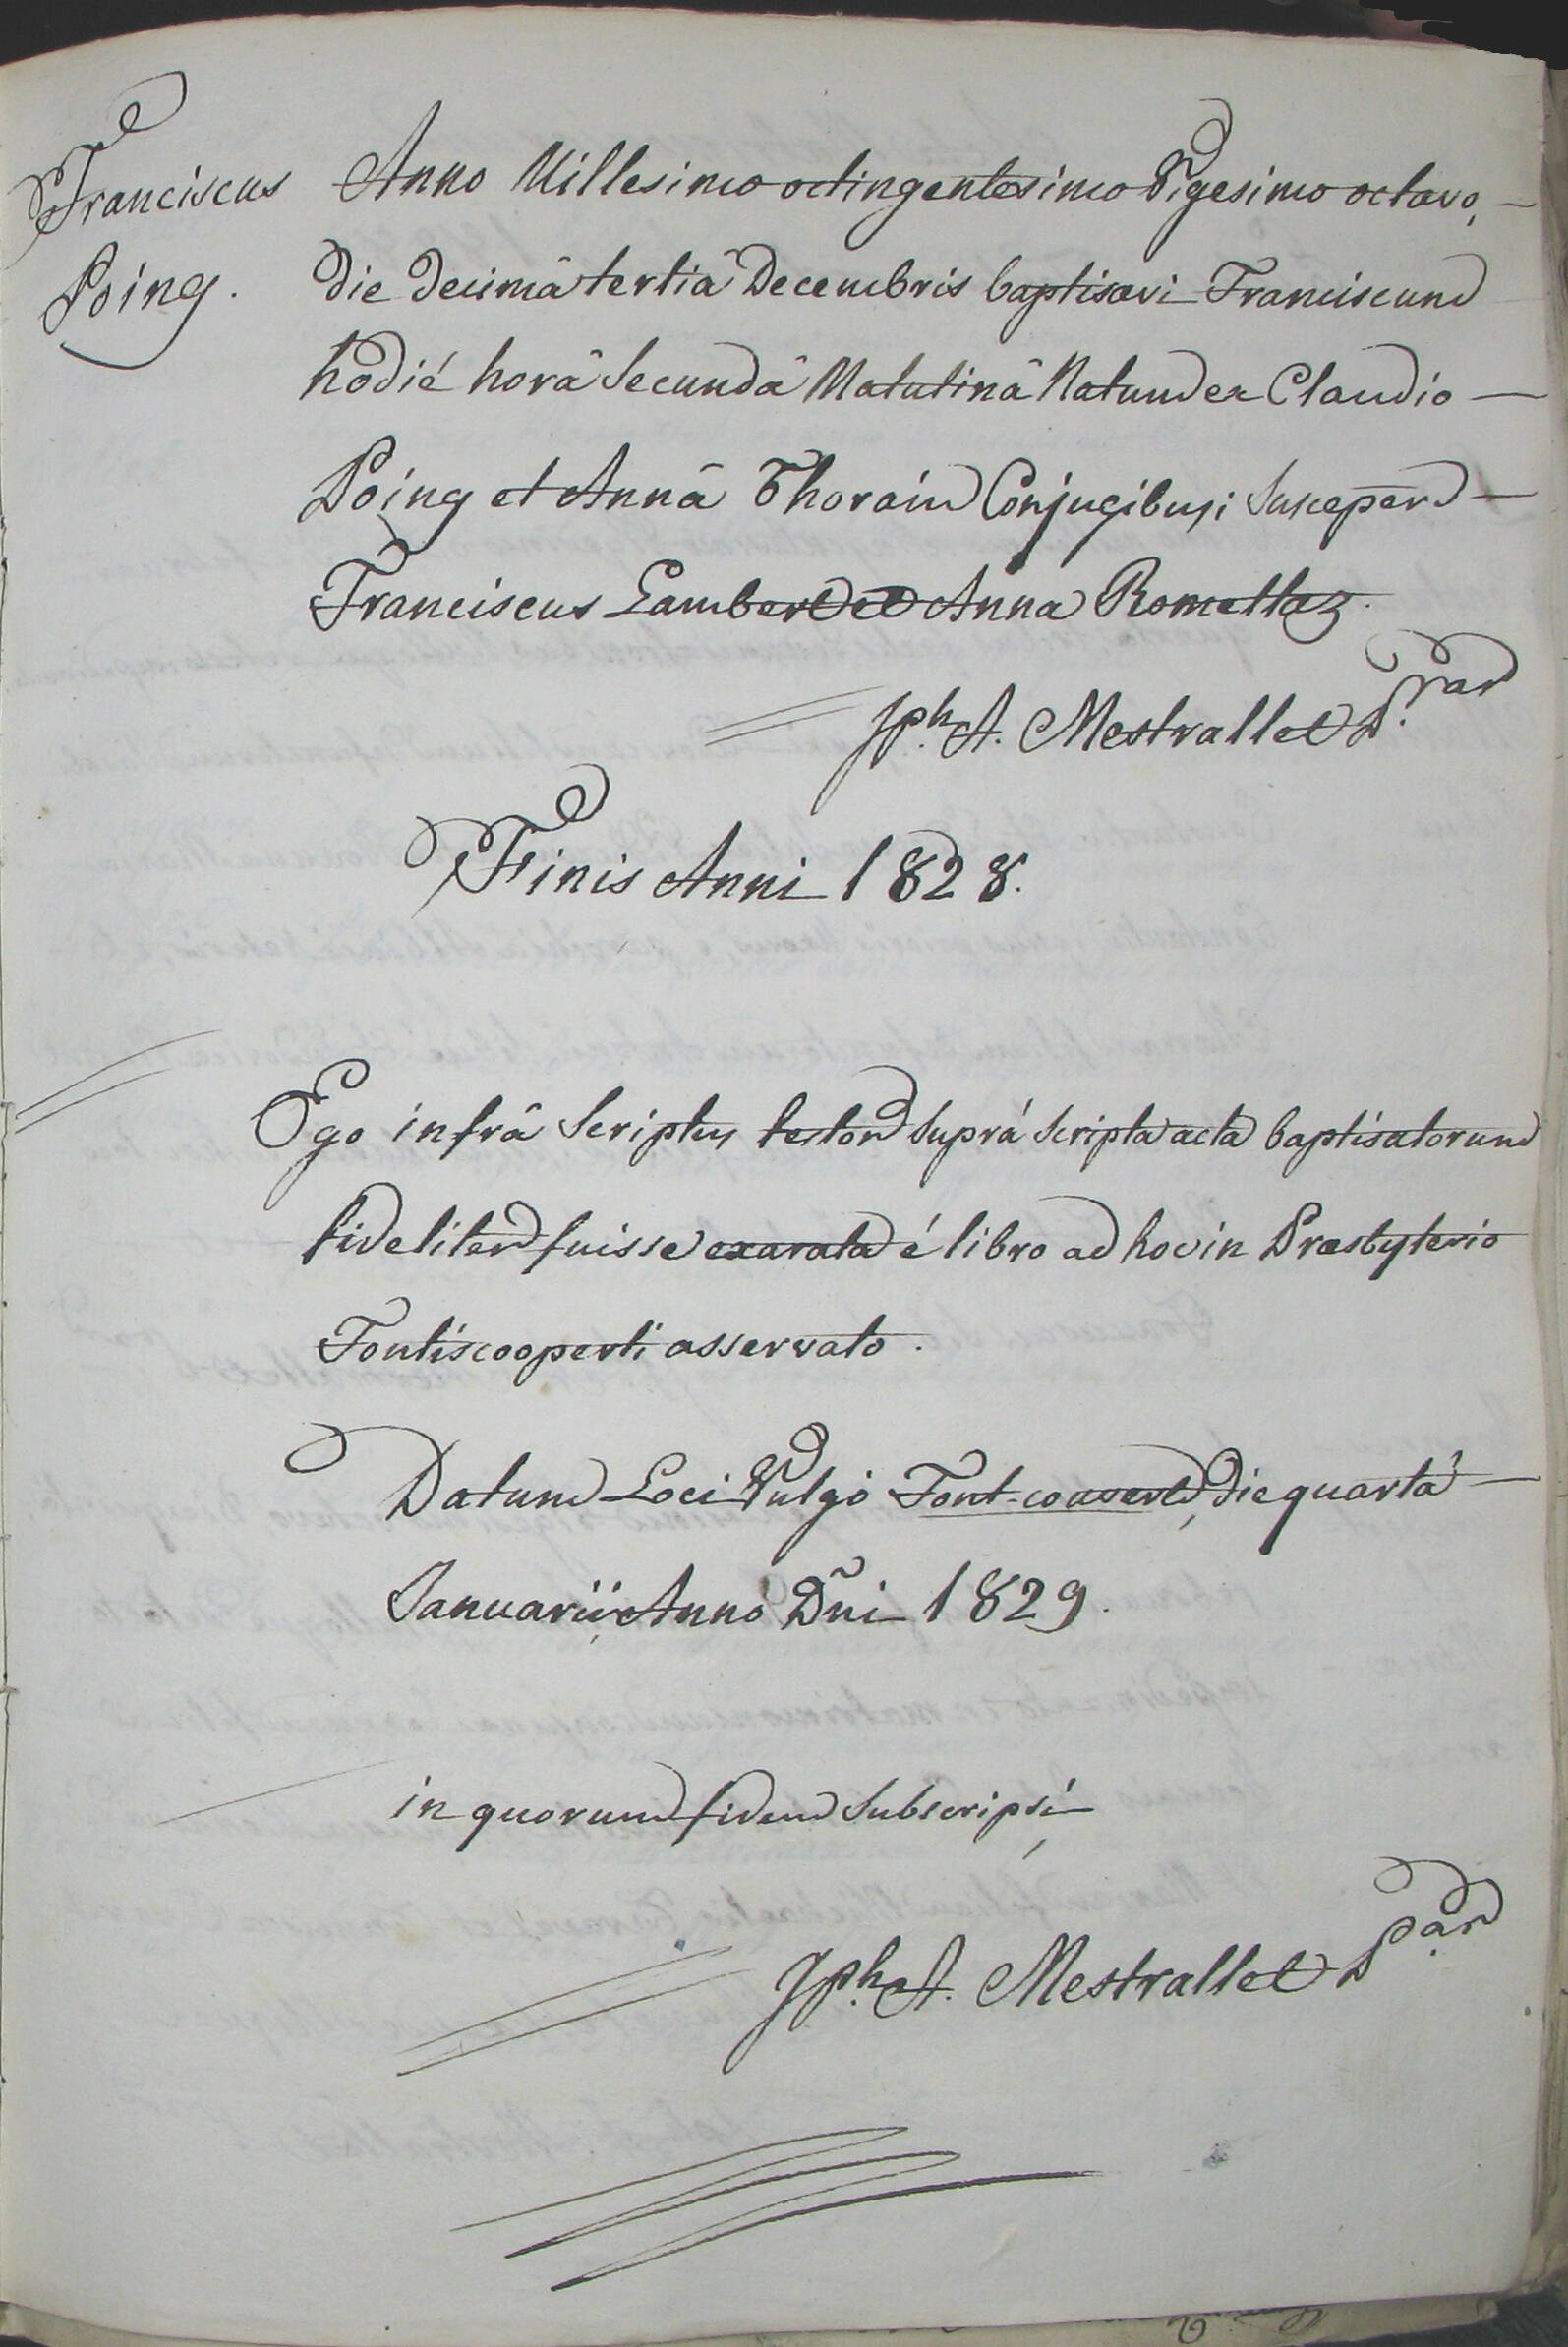 Franciscus
Poing.
Anno Millesimo octingentesimo Vigesimo octavo,
die decimâ tertiâ Decembris baptisavi Franciscum
hodié horâ Secundâ Matutinâ Natum ex Claudio
Poing et Annâ Thorain Conjugibus; Susceper.
Franciscus Lambert et Anna Romettaz.
Jph. A. Mestrallet
Finis Anni 1828.
Ego infrâ Scriptus testor Suprá Scripta acta baptisatorum
fideliter fuisse exarata é libro ad hoc in Præsbyterio
Fontiscooperti asservato.
Datum Loci Vulgò Font-couvert, die quartá
Januarii Anno Dñi 1829.
in quorum fidem Subscripsi
Jph. A. Mestrallet